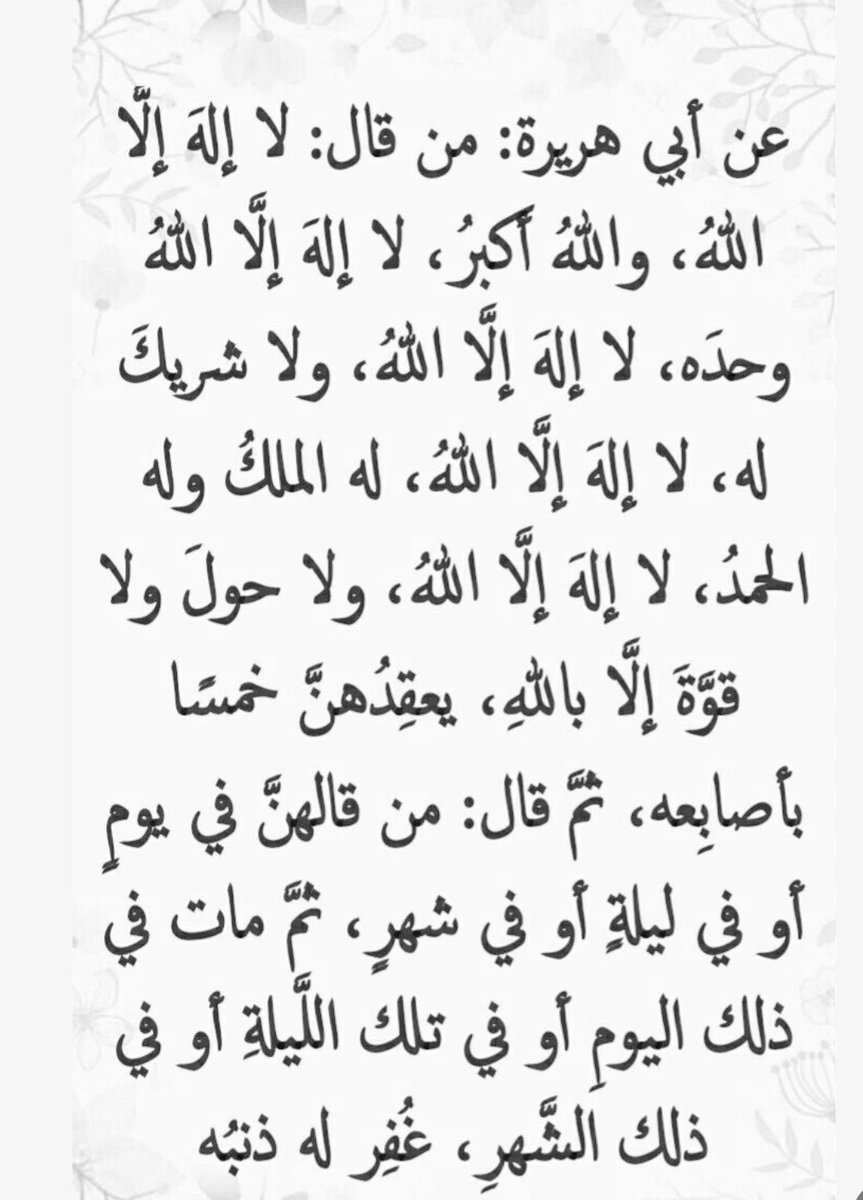 عن أبي هريرة: من قال: لا إلهَ إلَّا
اللهُ، واللهُ أكبرُ، لا إلهَ إلَّا اللهُ
وحدَه، لا إلهَ إلَّا اللهُ، ولا شريكَ
له، لا إلهَ إلَّا اللهُ، له الملكُ وله
الحمدُ، لا إلهَ إلَّا اللهُ، ولا حولَ ولا
قوَّةَ إلَّا باللهِ، يعقِدُهنَّ خمسًا
بأصابِعه، ثمَّ قال: من قالهنَّ في يومٍ
أو في ليلةٍ أو في شهرٍ، ثمَّ مات في
ذلك اليومِ أو في تلك اللَّيلةِ أو في
ذلك الشَّهرِ، غُفِر له ذنبُه